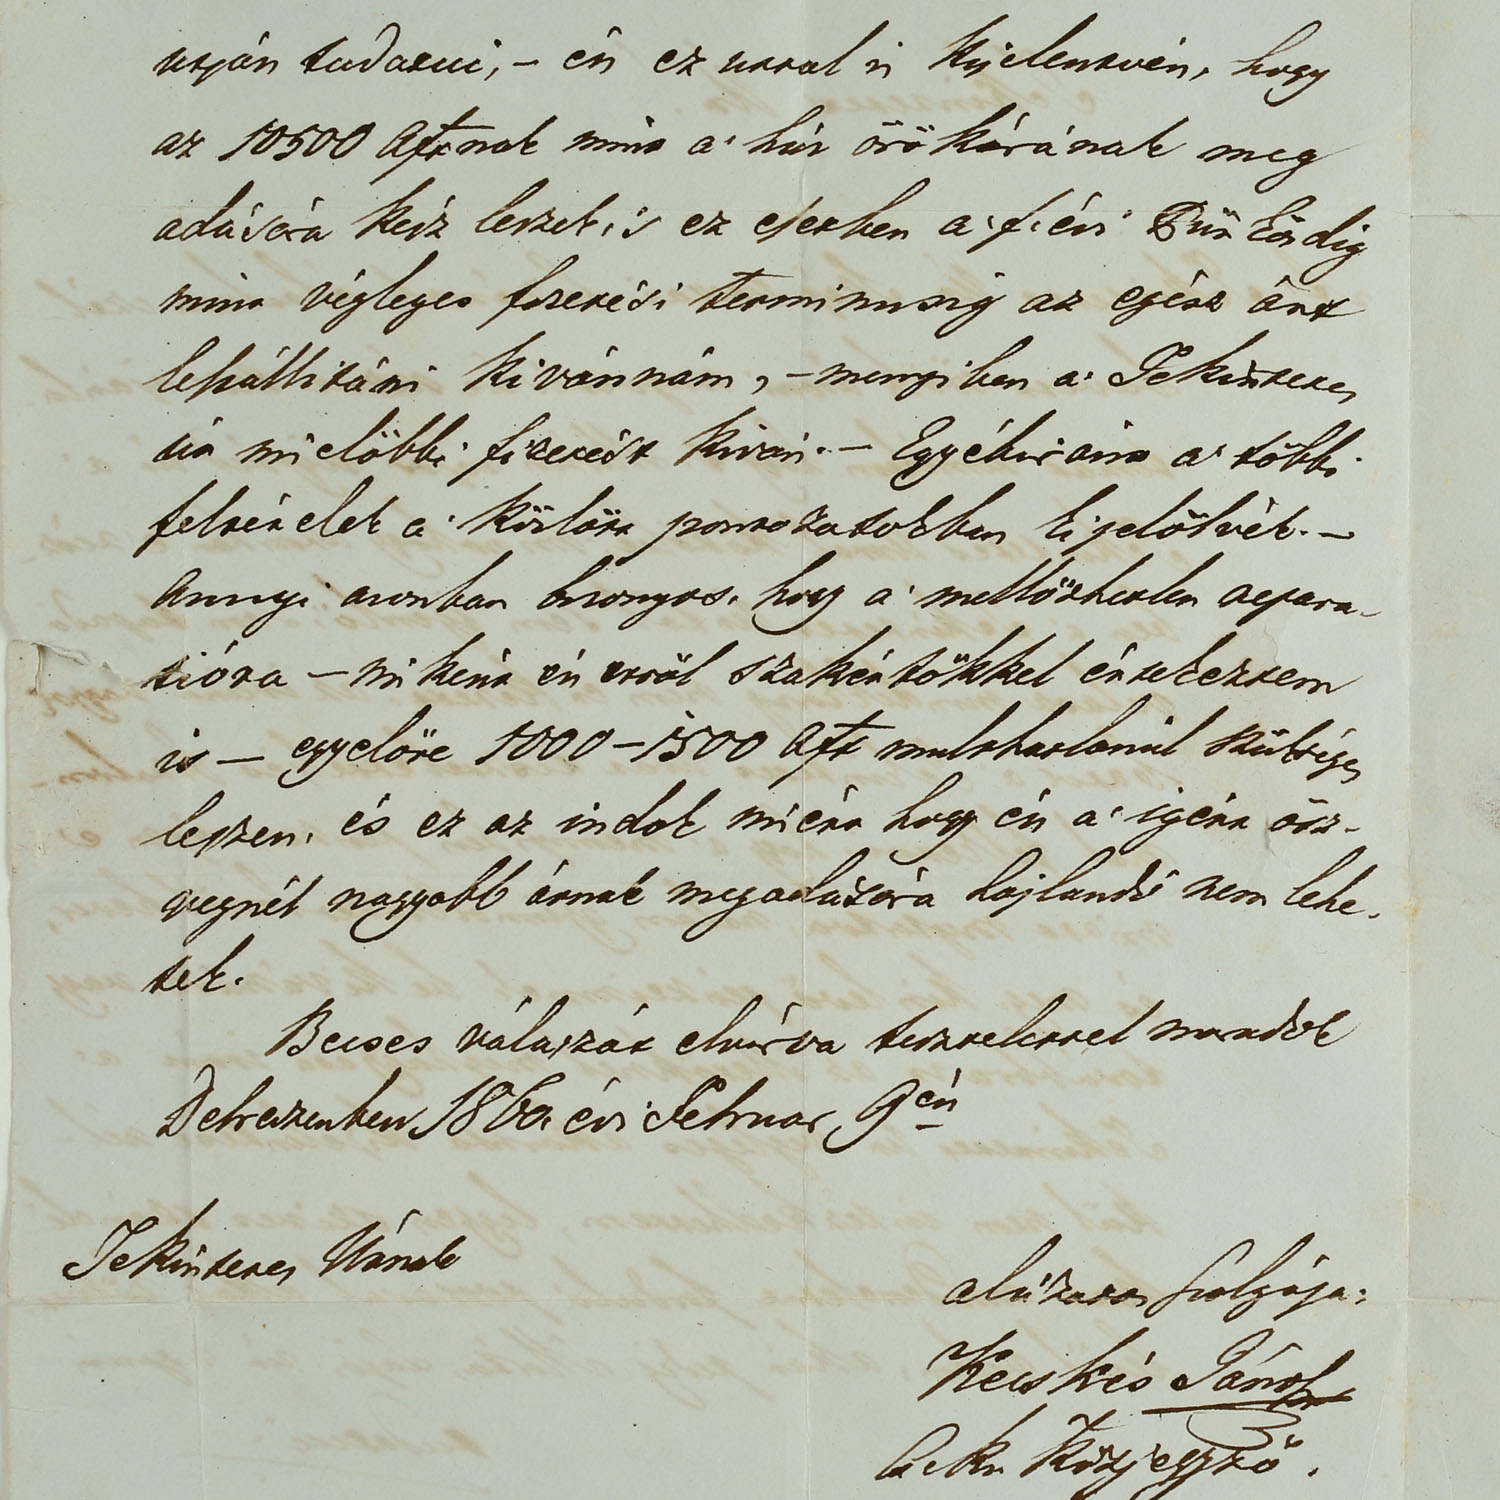 utján tudatni, – én ez uttal is kijelentvén, hogy
az 10500 aftnak mint a' ház örökárának meg
adására kész leszek, 's ez esetben a' f. évi Pünkösdig
mint végleges fizetési terminusig az egész árt
lefizetni kivánnám, – menyiben a' Tekintetes
úr mielőbbi fizetést kiván. – Egyébiránt a' többi
feltételek a' közlött pontozatokban kijelölvék. –
Annyi azonban bizonyos, hogy a' mellőzhetlen repara-
tióra – miként én erről szakértőkkel értekeztem
is – egyelőre 1000 – 1500 aft mulhatlanúl szükséges
leszen, és ez az indok miért hogy én a' igért ösz-
vegnél nagyobb árnak megadására hajlandó nem lehe-
tek.
Becses válaszát elvárva tisztelettel maradok
Debreczenben 1860. évi Februar 9én
Tekintetes Úrnak
alázatos szolgája:
Kecskés János
Közjegyző.